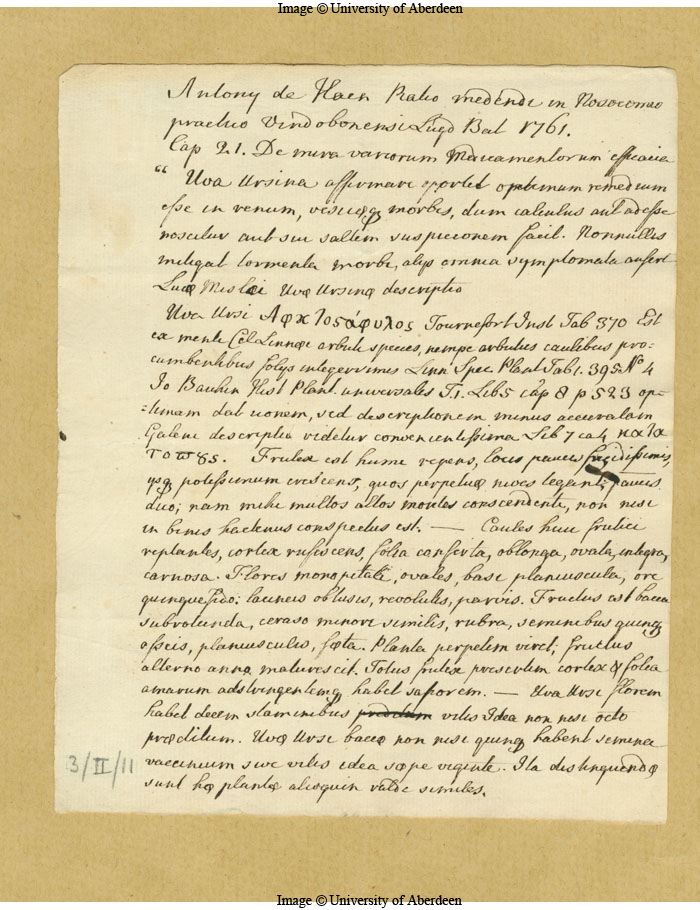 Image © University of Aberdeen
Antony de Haen Ratio medendi in Nosocomio
practico Vindobonensi Lugd Bat 1761.
Cap 21. De mira variorum Medicamentorum efficacia
“ Uva Ursina affirmare oportet optimum remedium
esse in renum, vesicæq morbis, dum calculus aut adesse
noscitur aut sui saltem suspicionem facit. Nonnullis
mitigat tormenta morbi, alys omnia symptomata aufert
Lucæ Uvæ Ursinæ descriptio
Uva Ursi Tournefort Inst Tab 370 Est
ex mente Cel Linnæi arbuti species, nempe arbutus caulibus pro:
cumbentibus folys integerrimis Linn Spec. Plant Tab 1. 395 No 4
Jo Bauhin Hist Plant universales T.1. Lib 5 cap 8 p 523 op-
-timam dat iconem, sed descriptionem minus accuratam
Galeni descriptio videtur convenientissima Lib 7 ca 4 κατα
τοπ8ς. Frutex est humi repens, locis paucis frigidissimis,
ysq potissimum crescens, quos perpetuæ nives tegant;
duo; nam mihi multos altos montes conscendente, non nisi
in binis hactenus conspectus est. — Caules huic frutici
reptantes, cortex rufescens, folia conferta, oblonga, ovata, integra,
carnosa. Flores monopetali, ovales, basi planiuscula, ore
quinquefido: laciniis obtusis, revolutis, parvis. Fructus est bacca
subrotunda, ceraso minore similis, rubra, seminibus quinq
osseis, planiusculis, fœta. Planta perpetim viret; fructus
alterno anno maturescit. Totus frutex præsertim cortex & folia
amarum adstringentemq habet saporem. — Uva Ursi florem
habet decem staminibus vitis Idea non nisi octo
præditum. Uvæ Ursi baccæ non nisi quinq habent semina
vaccinium sive vitis idea sæpe viginti. Ita distinguendæ
sunt hæ plantæ alioquin valde similes.
3/II/11
Image © University of Aberdeen